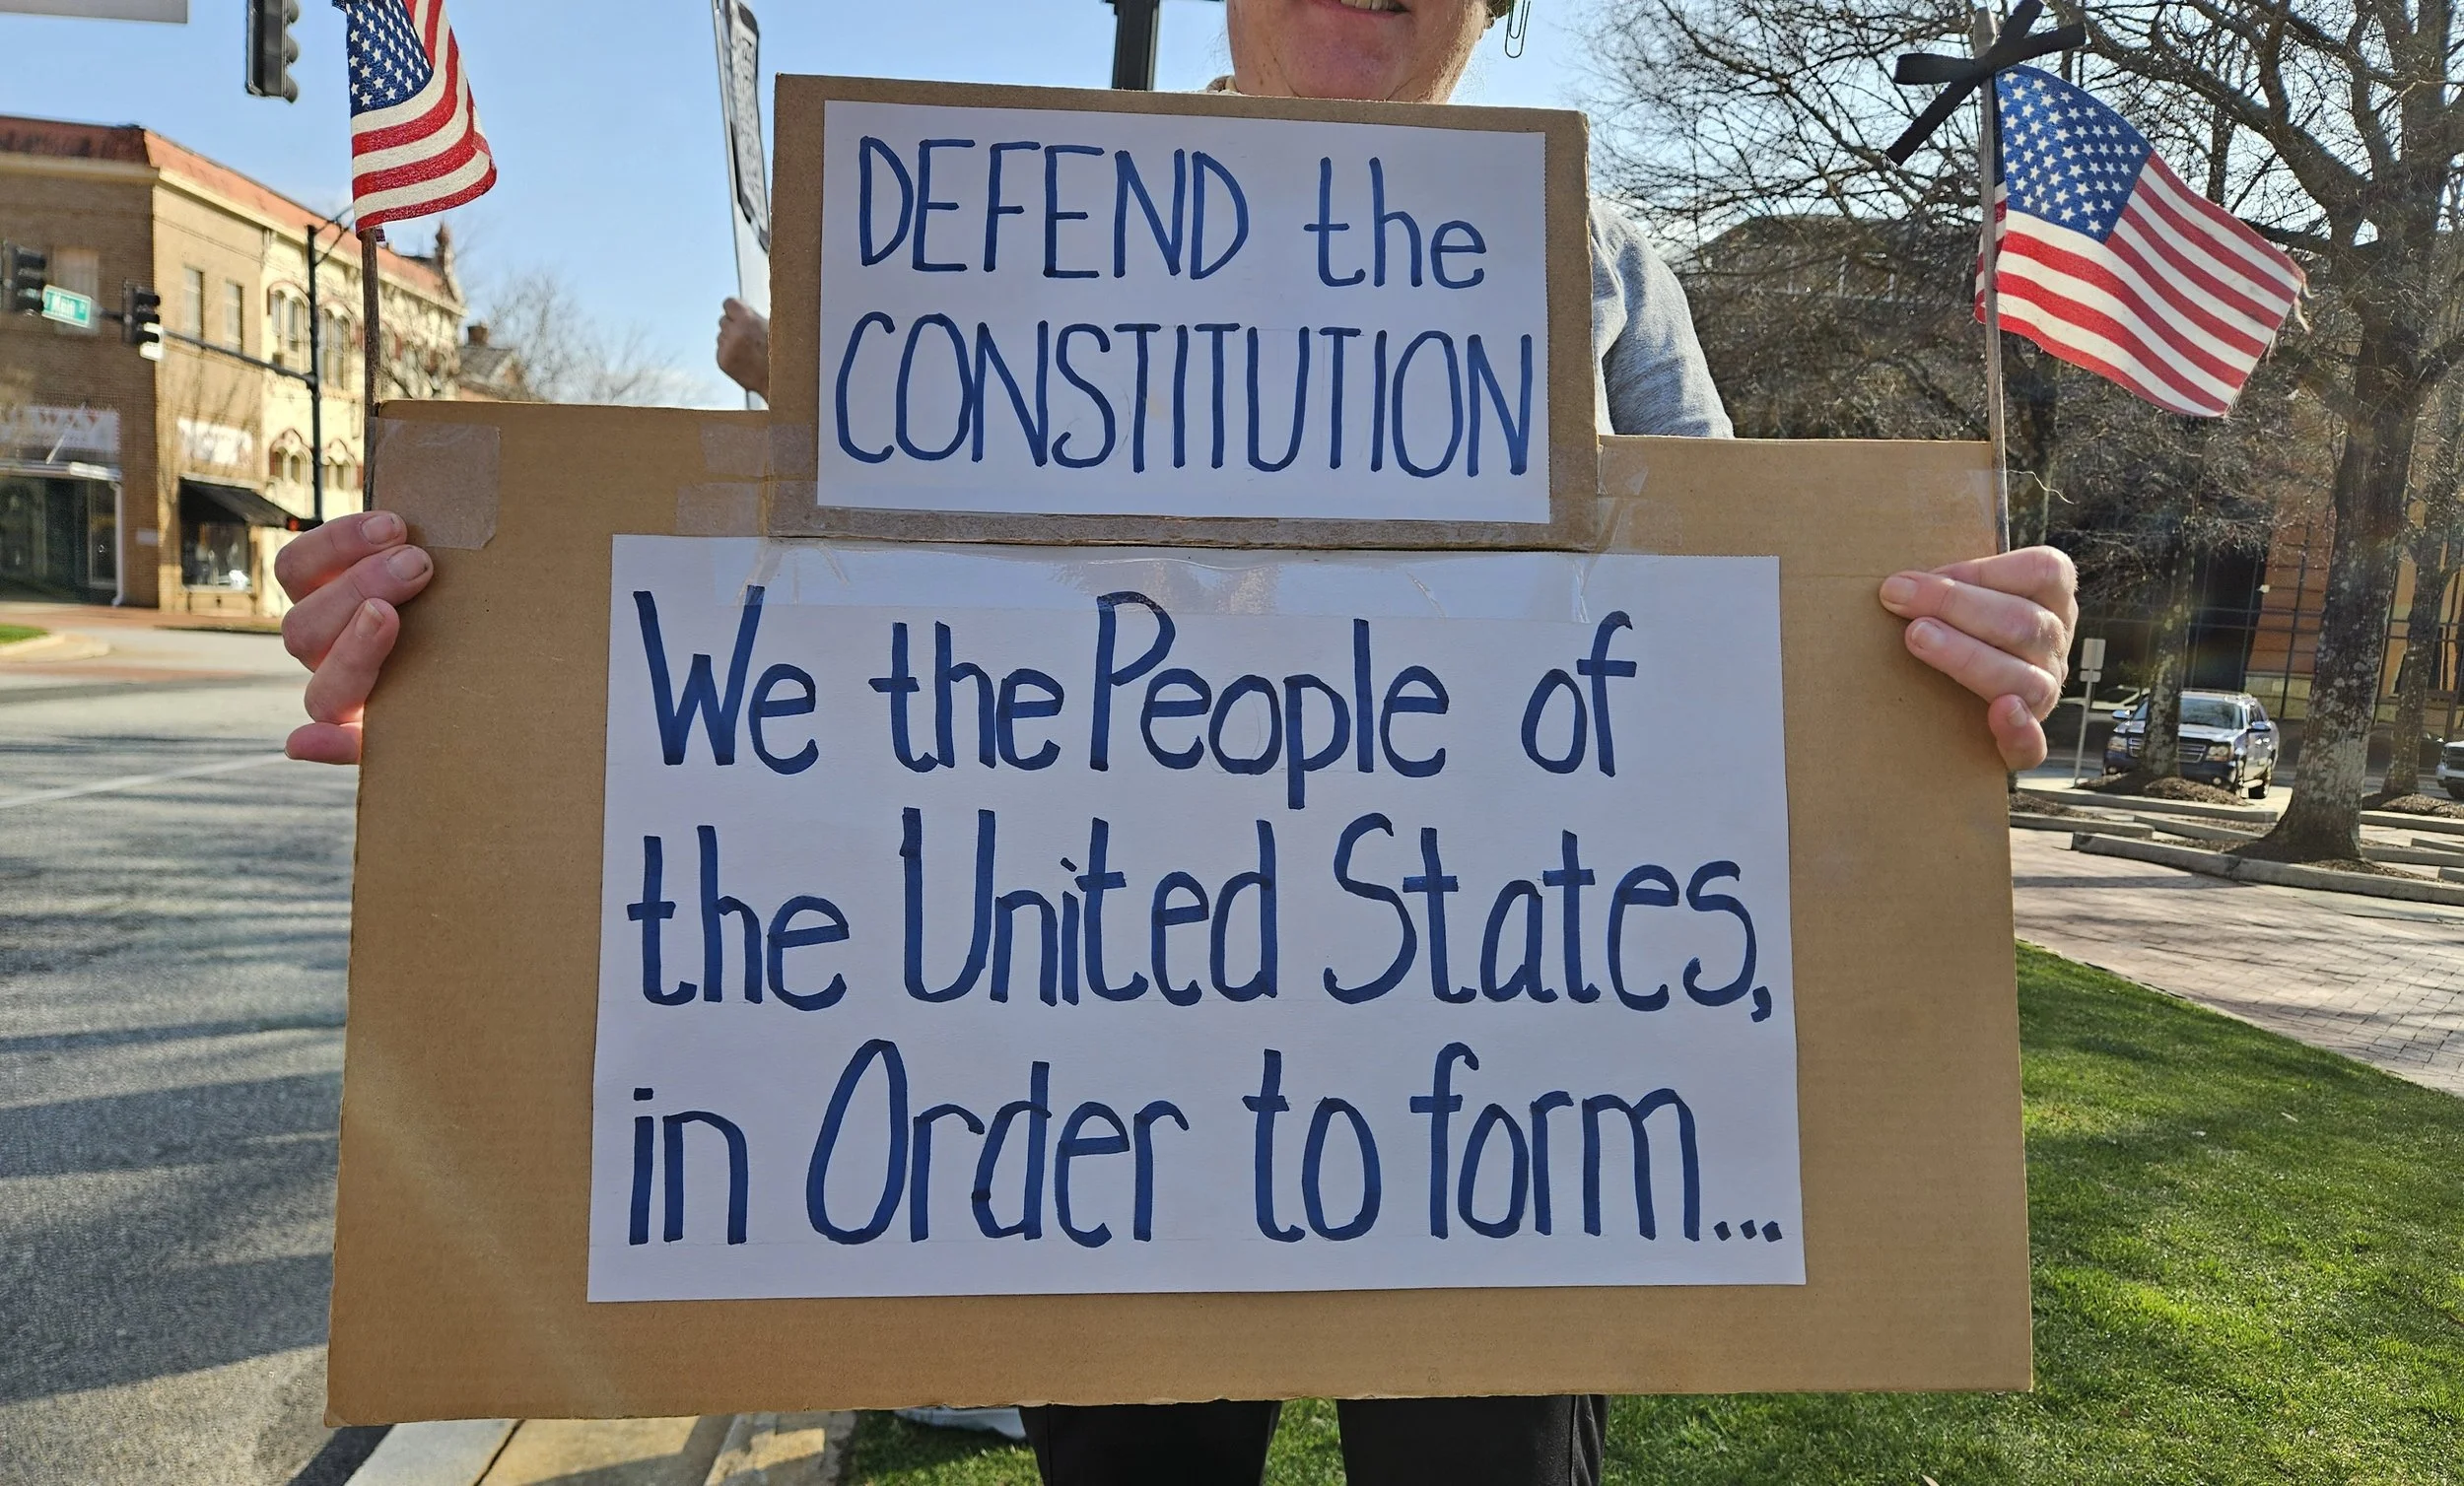 DEFEND the
CONSTITUTION
We the People of
the United States,
in Order to form...
Main